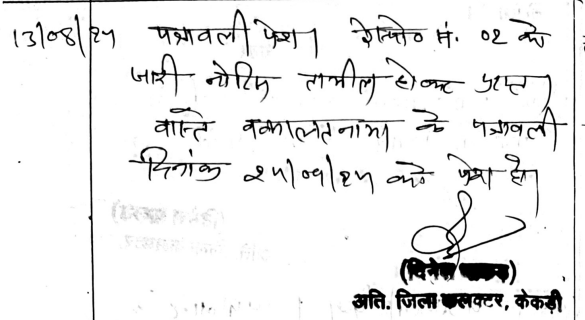 13/08/25 पत्रावली पेश। रेस्पो० सं. 02 को
जारी नोटिस तामील होकर प्राप्त।
वास्ते वकालतनामा के पत्रावली
दिनांक 25/09/25 को पेश हो।
(दिनेश
अति. जिला कलक्टर, केकड़ी